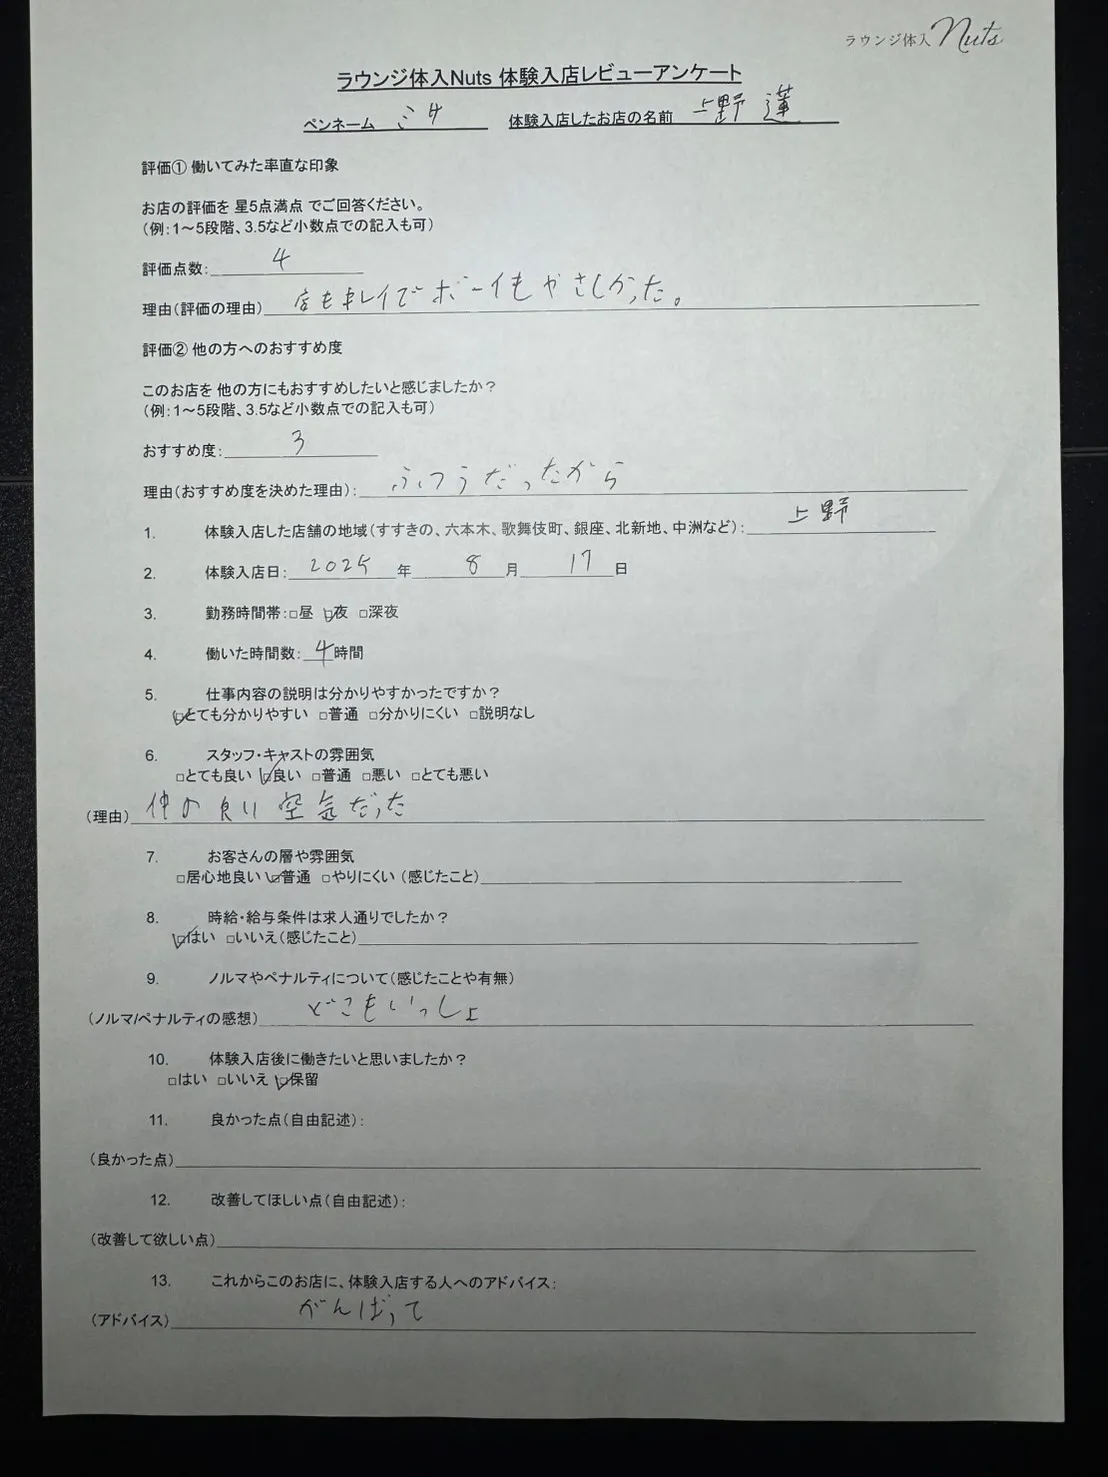 ラウンジ体入 Nuts
ラウンジ体入Nuts 体験入店レビューアンケート
ペンネーム ミサ 体験入店したお店の名前 上野 蓮
評価① 働いてみた率直な印象
お店の評価を 星5点満点 でご回答ください。
(例:1～5段階、3.5など小数点での記入も可)
評価点数: 4
理由(評価の理由) 店もキレイでボーイもやさしかった。
評価② 他の方へのおすすめ度
このお店を 他の方にもおすすめしたいと感じましたか?
(例:1～5段階、3.5など小数点での記入も可)
おすすめ度: 3
理由(おすすめ度を決めた理由): ふつうだったから
1. 体験入店した店舗の地域(すすきの、六本木、歌舞伎町、銀座、北新地、中洲など): 上野
2. 体験入店日: 2025 年 8 月 17 日
3. 勤務時間帯:□昼 ☑夜 □深夜
4. 働いた時間数: 4 時間
5. 仕事内容の説明は分かりやすかったですか?
☑とても分かりやすい □普通 □分かりにくい □説明なし
6. スタッフ・キャストの雰囲気
□とても良い ☑良い □普通 □悪い □とても悪い
(理由) 仲の良い空気だった
7. お客さんの層や雰囲気
□居心地良い ☑普通 □やりにくい (感じたこと)
8. 時給・給与条件は求人通りでしたか?
☑はい □いいえ(感じたこと)
9. ノルマやペナルティについて(感じたことや有無)
(ノルマ/ペナルティの感想) どこもいっしょ
10. 体験入店後に働きたいと思いましたか?
□はい □いいえ ☑保留
11. 良かった点(自由記述):
(良かった点)
12. 改善してほしい点(自由記述):
(改善して欲しい点)
13. これからこのお店に、体験入店する人へのアドバイス:
(アドバイス) がんばって